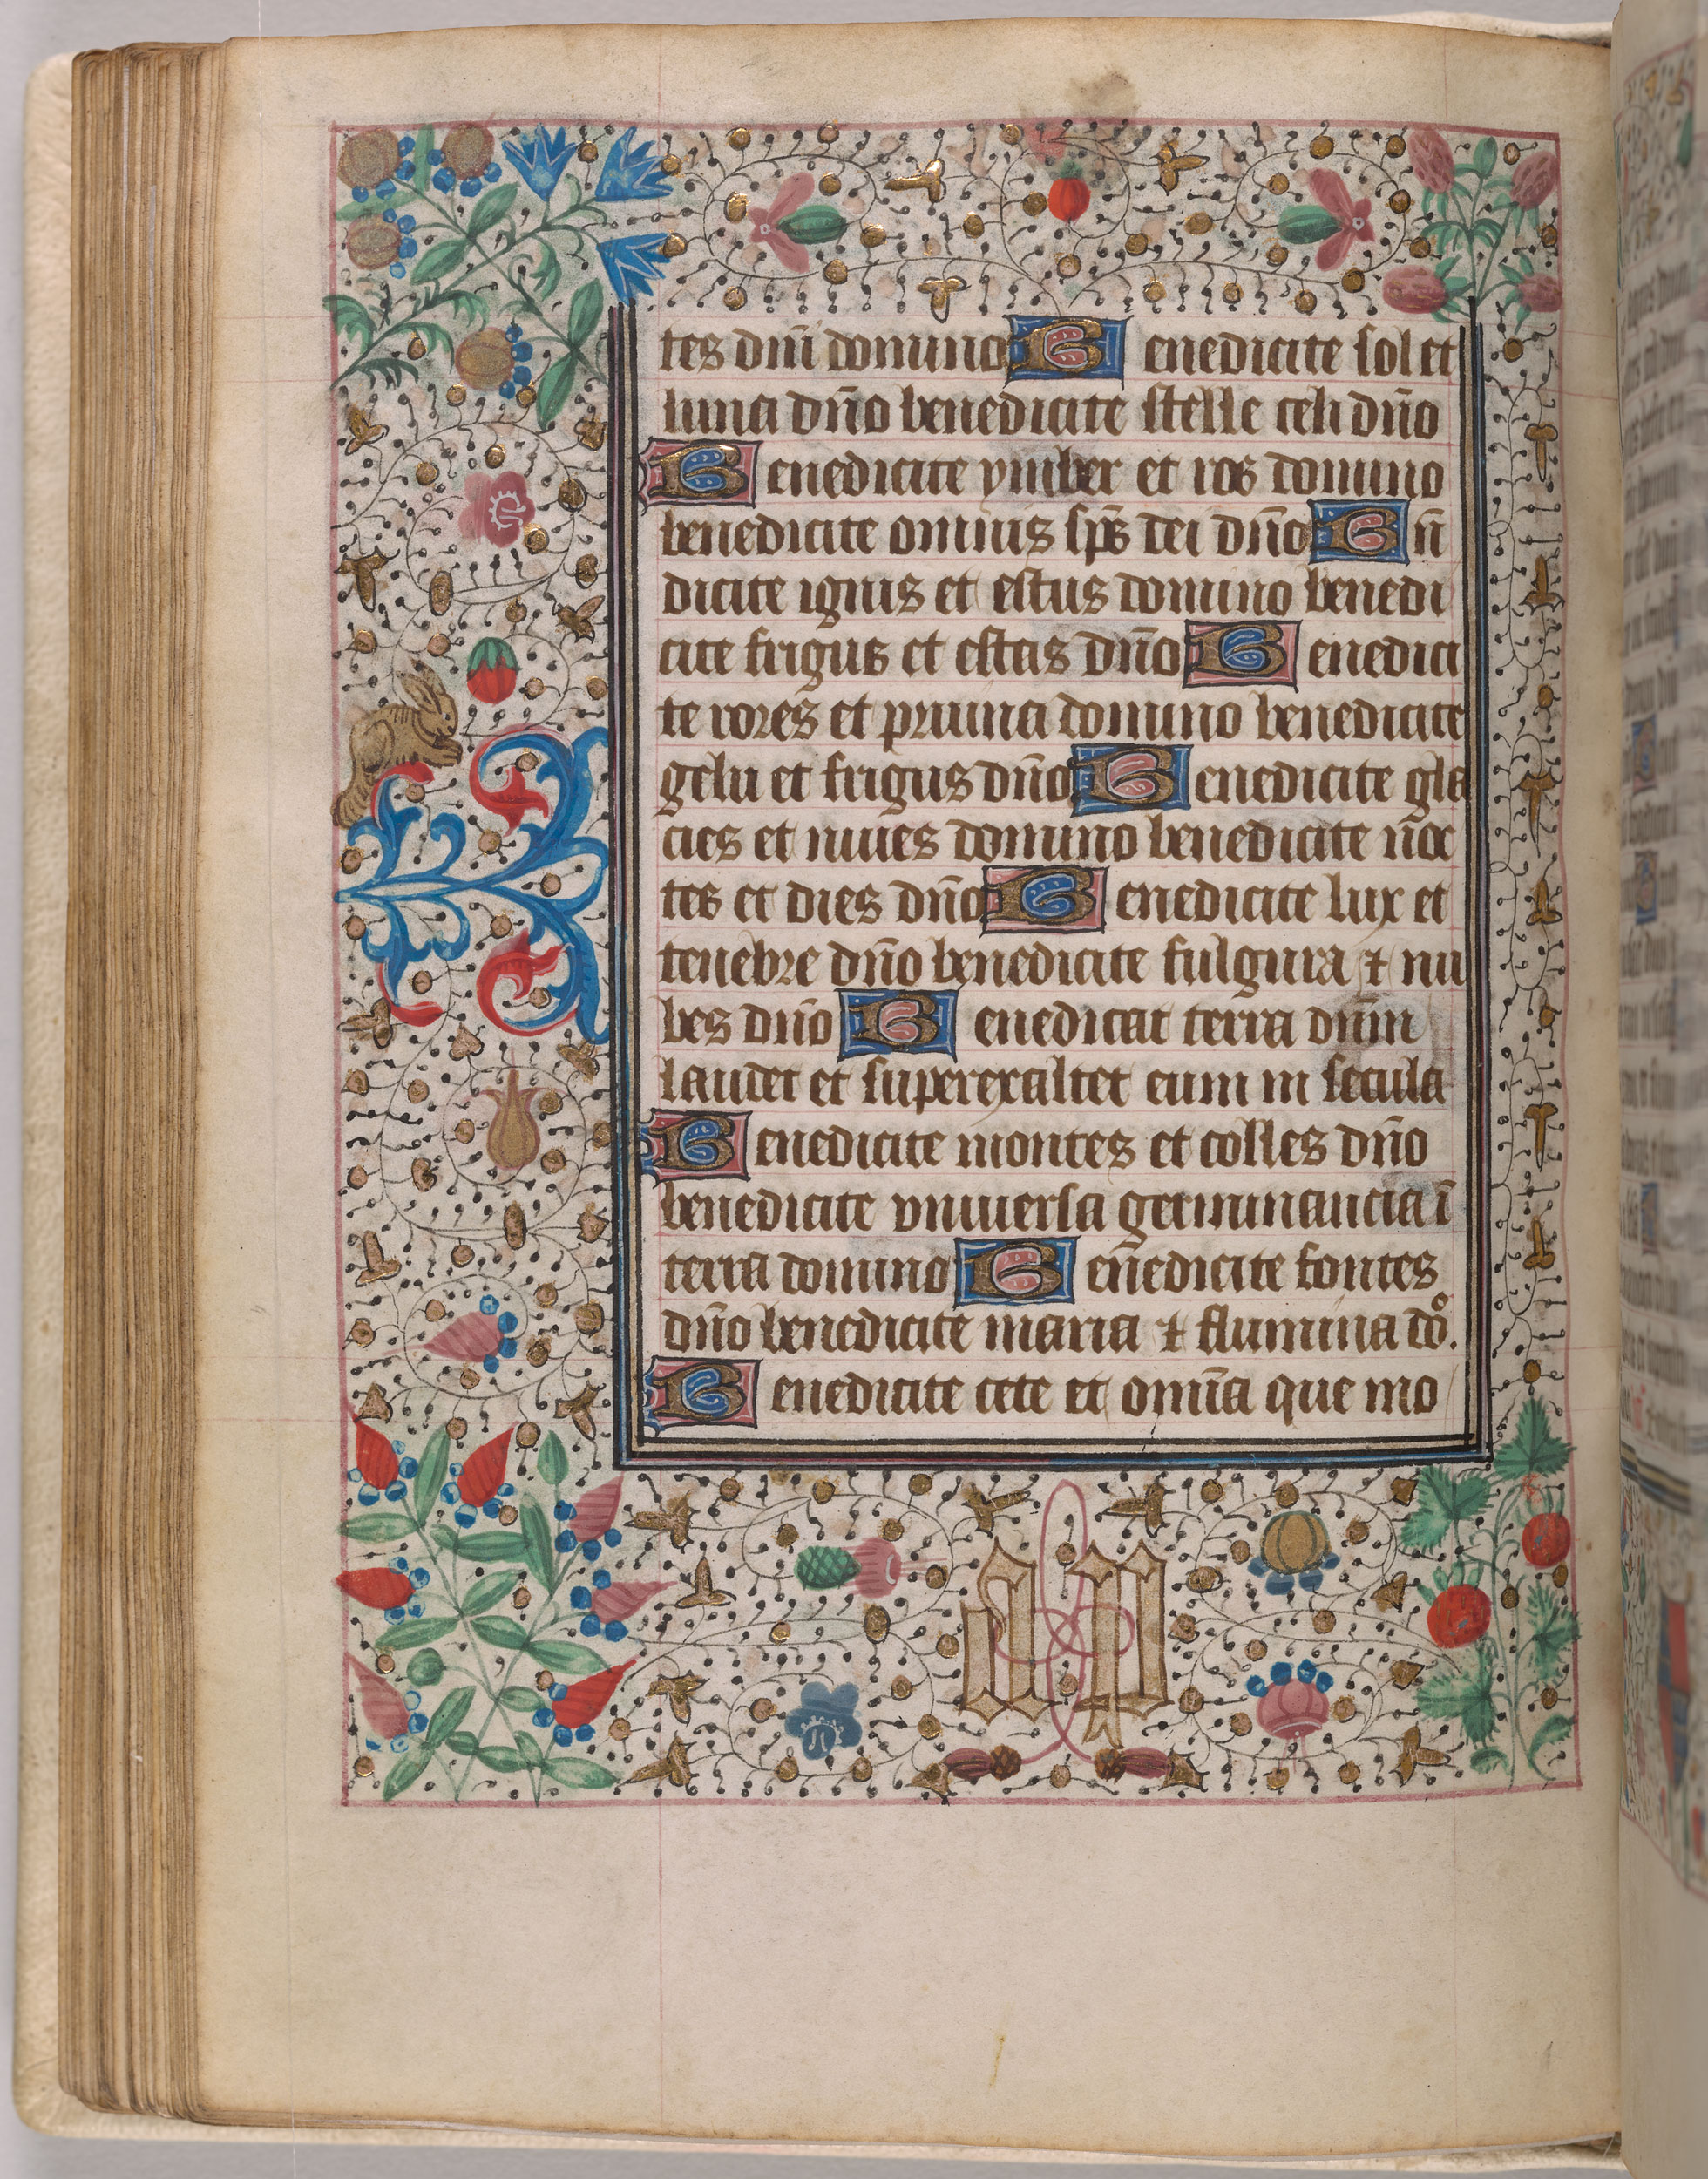 tes dñi domino Benedicite sol et
luna dño benedicite stelle celi dño
Benedicite ymber et ros domino
benedicite omnis sps̄ dei dño Bn̄
dicite ignis et estus domino benedi
cite frigus et estas dño Benedici
te rores et pruina domino benedicite
gelu et frigus dño Benedicite gla
cies et niues domino benedicite noc
tes et dies dño Benedicite lux et
tenebre dño benedicite fulgura ⁊ nu
bes dño Benedicat terra dñm
laudet et superexaltet eum in secula
Benedicite montes et colles dño
benedicite vniuersa germinancia ī
terra domino Ben̄edicite fontes
dño benedicite maria ⁊ flumina dº.
Benedicite cete et omīa que mo